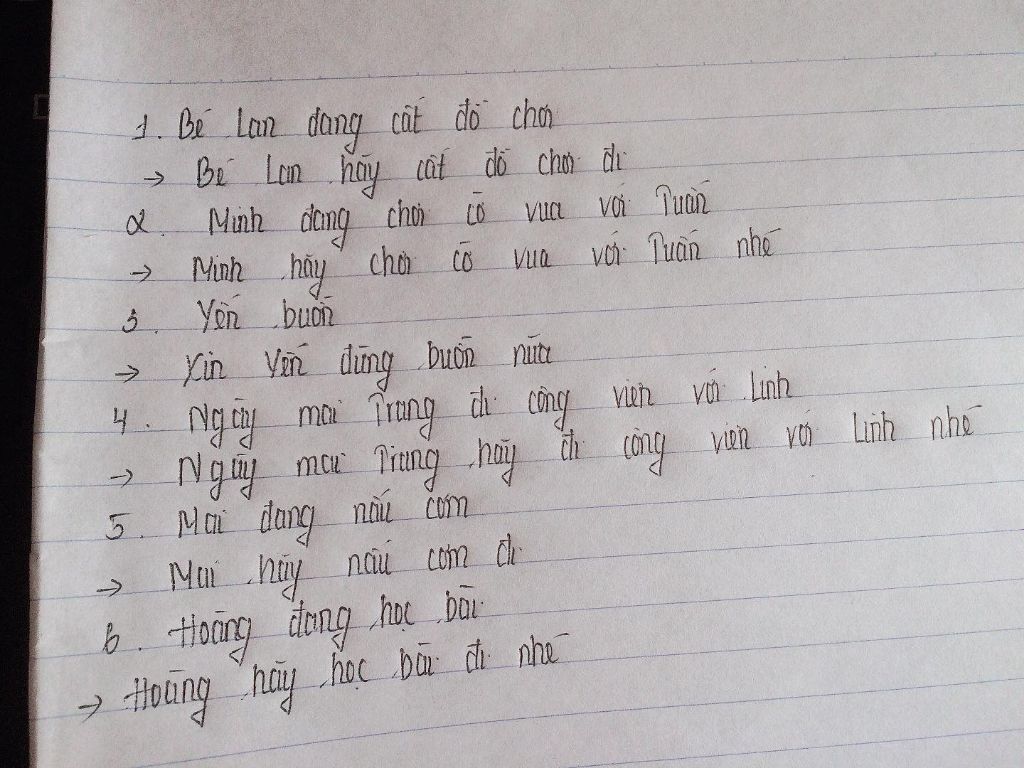 1. Bé Lan đang cất đồ chơi
→ Bé Lan hãy cất đồ chơi đi
2. Minh đang chơi cờ vua với Tuấn
→ Minh hãy chơi cờ vua với Tuấn nhé
3. Yến buồn
→ Xin Yến đừng buồn nữa
4. Ngày mai Trang đi công viên với Linh
→ Ngày mai Trang hãy đi công viên với Linh nhé
5. Mai đang nấu cơm
→ Mai hãy nấu cơm đi
6. Hoàng đang học bài
→ Hoàng hãy học bài đi nhé